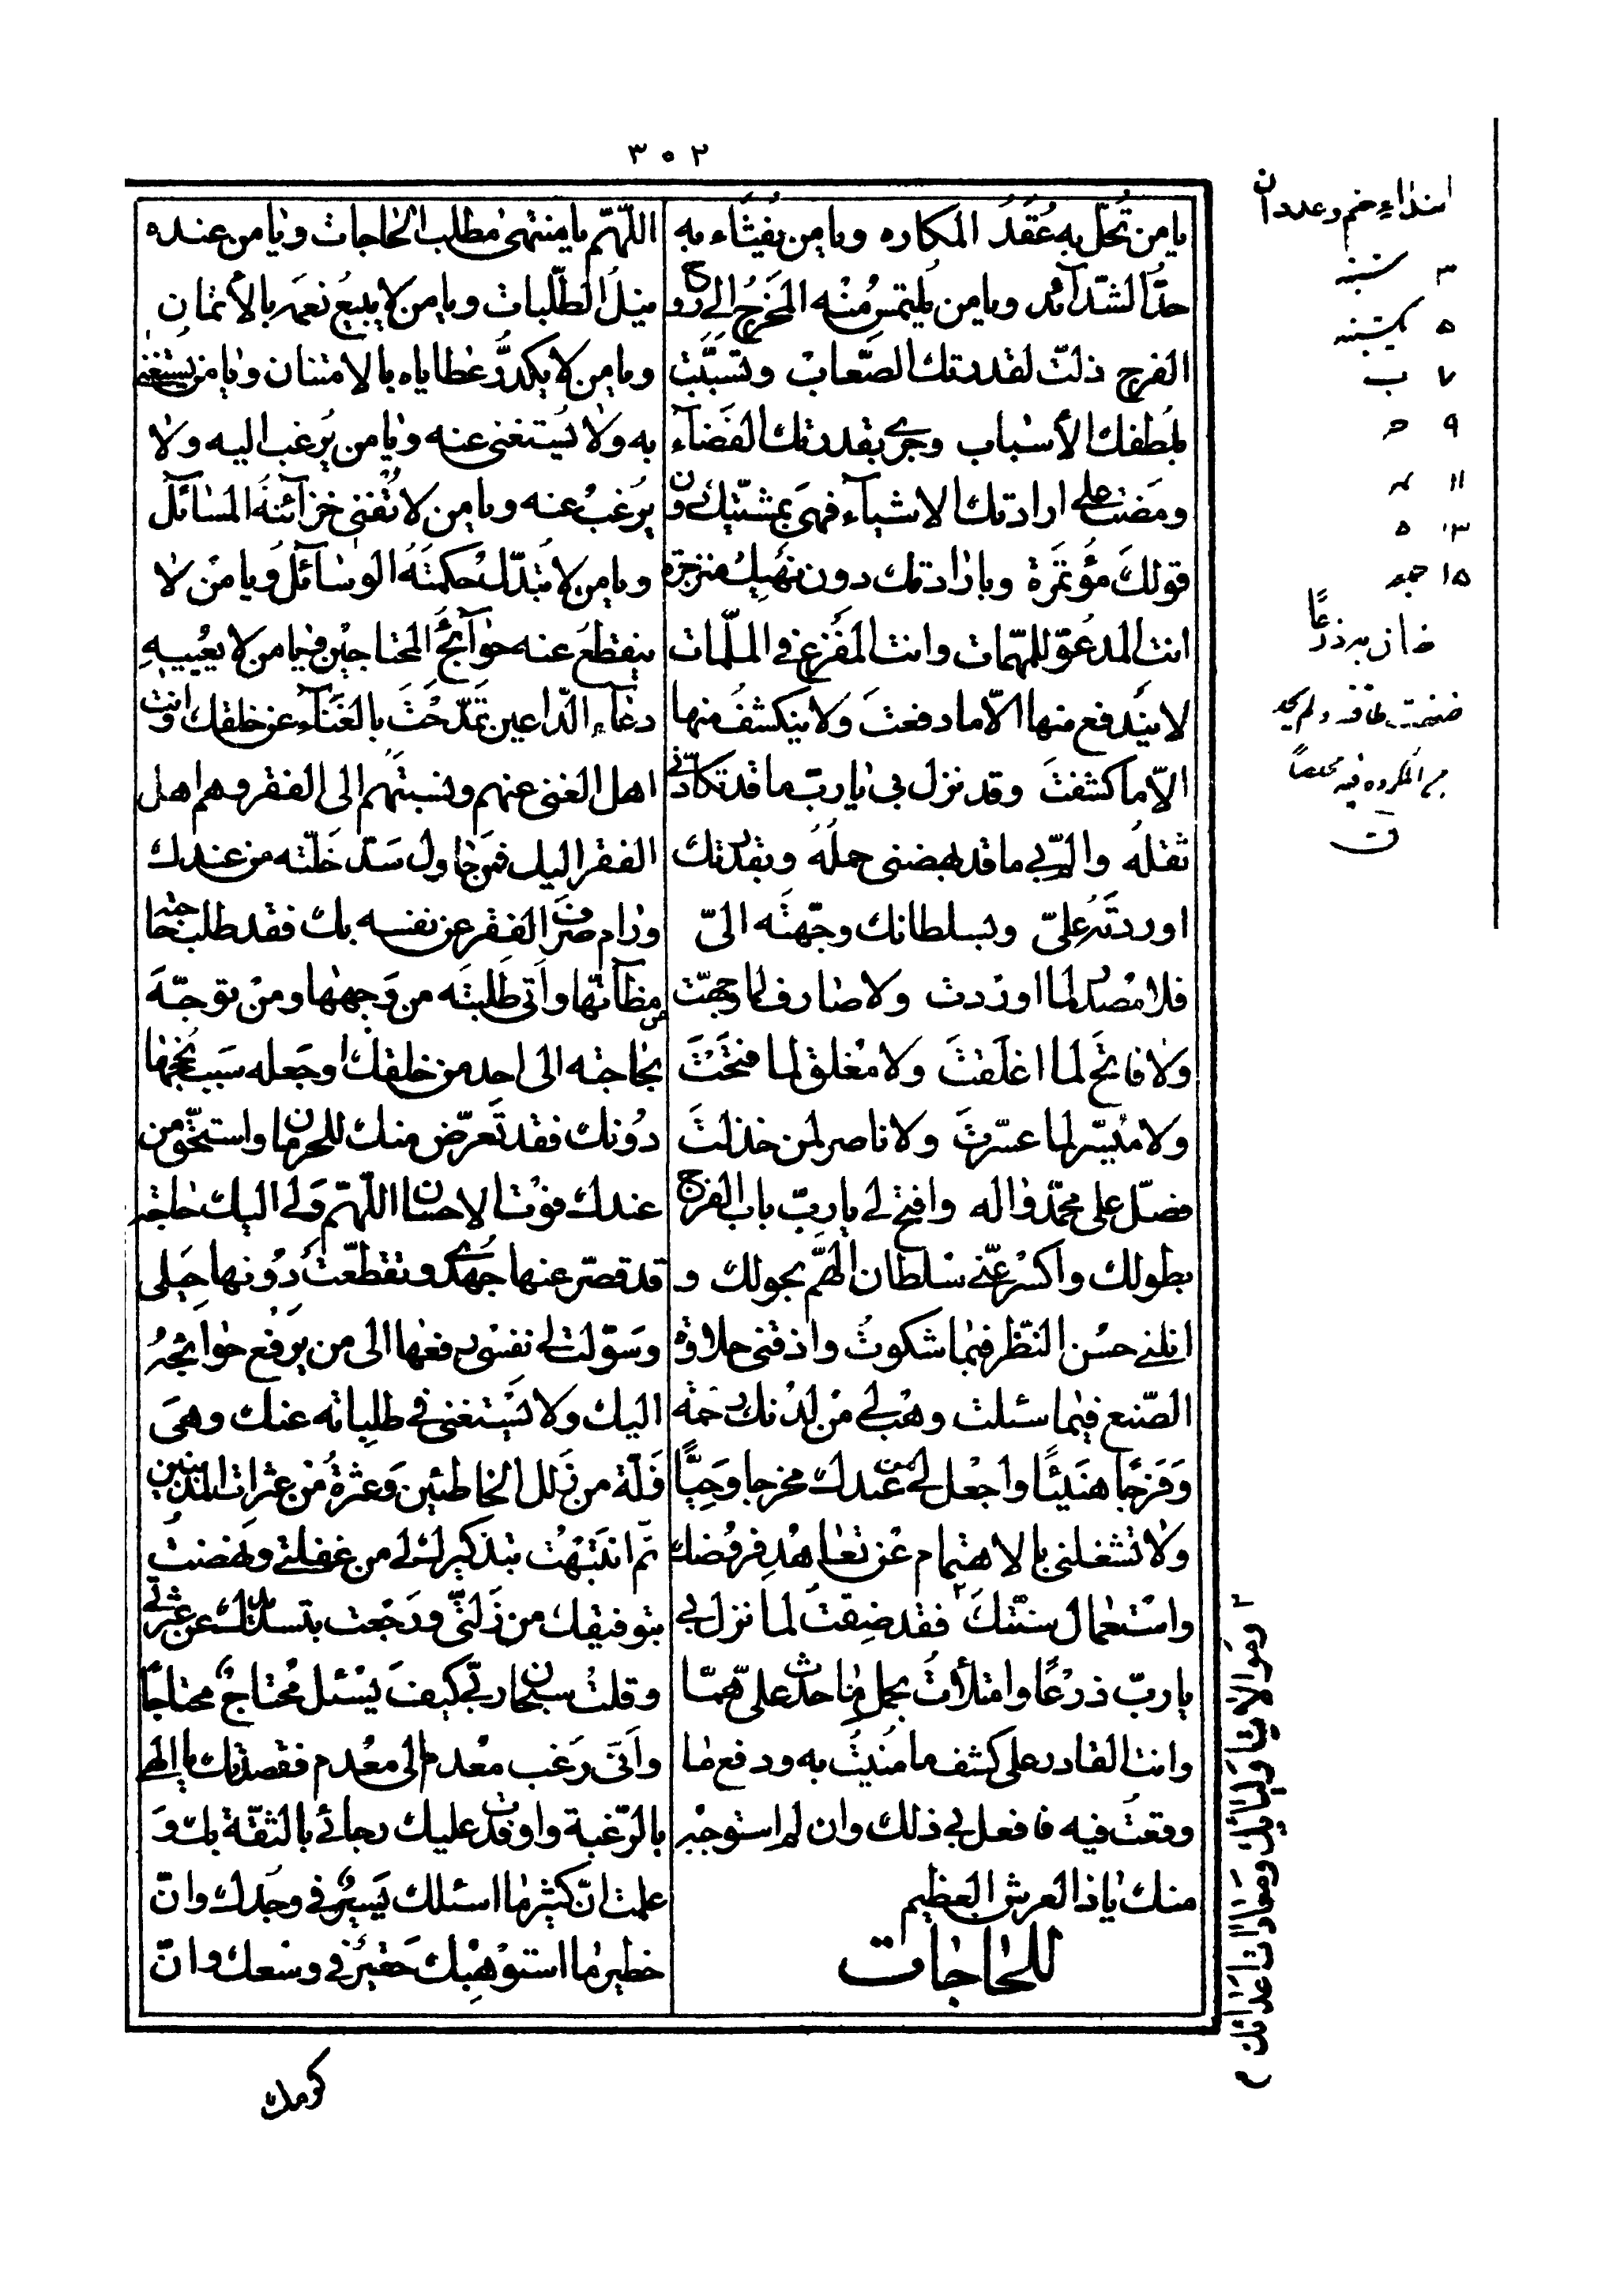 ٣٠٢
يا من تُحلّ به عُقَدُ المكاره ويا من يُفثَاء به
حدّ الشدآئد ويا من يُلتمسُ مِنْه المَخرجُ الى رَوح
الفرج ذلّت لقدرتك الصّعاب وتسبّبَت
بلُطفك الأسباب وجرى بقدرتك القضآء
ومَضت على ارادتك الاشيآء فهى بمشيّتِك دُون
قولكَ مؤتمَرة وبارادتك دون نهيك منزجرة
انت المدعوّ للمهمّات وانت المفزع فى الملمّات
لا يندفع منها الّا ما دفعتَ ولا ينكشفُ منها
الّا ما كشفتَ وقد نزل بى يا ربّ ما قد تكأدنى
ثقلُه والمّ بى ما قد بهضنى حملُهُ وبقدرتك
اوردتَه علىّ وبسلطانك وجّهتَه الىّ
فلا مُصدرَ لما اوردت ولا صارف لما وجهّت
ولا فاتحَ لما اغلَقتَ ولا مُغلق لما فتَحْتَ
ولا مُيسّر لما عسّرتَ ولا ناصر لمن خذلتَ
فصلّ على محمّد واله وافتح لى يا ربّ باب الفرج
بطولك واكسْر عنّى سلطان الهمّ بحولك و
انلنى حسْن النّظر فيما شكوتُ واذقنى حلاوة
الصّنع فيما سئلت وهب لى من لدنك رحمة
وَفرَجًا هنَيئًا واجعل لى من عندك مخرجا وحِيًّا
ولا تشغلنى بالاهتمام عن تعاهد فروضك
واستعمال سنّتك ٢ فقد ضِقتُ لما نزل بى
يا ربّ ذرْعًا وامتلأتُ بحمل ما حدث علىّ همّا
وانت القادر على كشف ما مُنيتُ به ودفع ما
وقعتُ فيه فافعل بى ذلك وان لم استوجبه
منك يا ذا العرش العظيم
للحاجات
اللّهمّ يا منتهى مطلب الحاجات ويا من عنده
نيلُ الطّلبات ويا من لا يبيعُ نعمَه بالأثمان
ويا من لا يكدّر عطاياه بالامتنان ويا من يستغنى
به ولا يُستغنى عنه ويا من يُرغب اليه ولا
يُرغبُ عنه ويا من لا تُفنى خزآئنَهُ المسَائل
ويا من لا تبدّل حكمتَهُ الوسآئلُ ويا من لا
ينقطعُ عنه حوآئجُ المحتاجين ويا من لا يعُييهِ
دعآء الدّاعين تمدّحْتَ بالغَنآء عن خلقك وانت
اهل الغنى عنهم ونسبتَهم الى الفقر وهم اهل
الفقر اليك فمَن حاول سَدّ خَلّته من عندك
ورام صَرف الفقر عن نفسه بك فقد طلب حاجته
من مظآنّها واَتى طَلِبتَه من وَجهها ومن توجّه
بحاجته الى احد من خلقك او جَعله سَبب نُجحها
دُونك فقد تَعرّض منك للحرمان واستحقّ من
عندك فوْت الاحسان اللّهمّ ولى اليك حاجة
قد قصّر عنها جُهدى وتقطّعتْ دُونها حِيَلى
وسَوّلت لى نفسْى رفعها الى من يَرفع حوائجه
اليك ولا يَستغنى فى طلِباته عنك وهىَ
زَلّة من زَلل الخاطئين وَعثرةُ من عثرات المذنبين
ثمّ انتَبهْت بتذكيرك لى من غفلتى ونهضتُ
بتوفيقك من زَلّتى ورَجعت بتسديدك عن عثرتى
وقلتُ سبحان ربّى كيفَ يَسْئل مُحتاجٌ محتاجًا
واَنّى رَغب معْدم الى معْدم فقصدتك يا الهى
بالرّغبة واوفدت عليك رجائى بالثقّة بك وَ
علمت انّ كثير ما اسئلك يَسيرٌ فى وجدك وانّ
خطير ما استوْهبك حَقيرٌ فى وسْعك وانّ
كرمك
ابتداء ختم وعدد ان
٣ شنبه
٥ يكشنبه
٧ ب
٩ ح
١١
١٣ ٥
١٥ جمعه
ضاق به ذرعًا
ضعفت طاقته ولم يجد
من المكروه فيه مخلصًا
ق